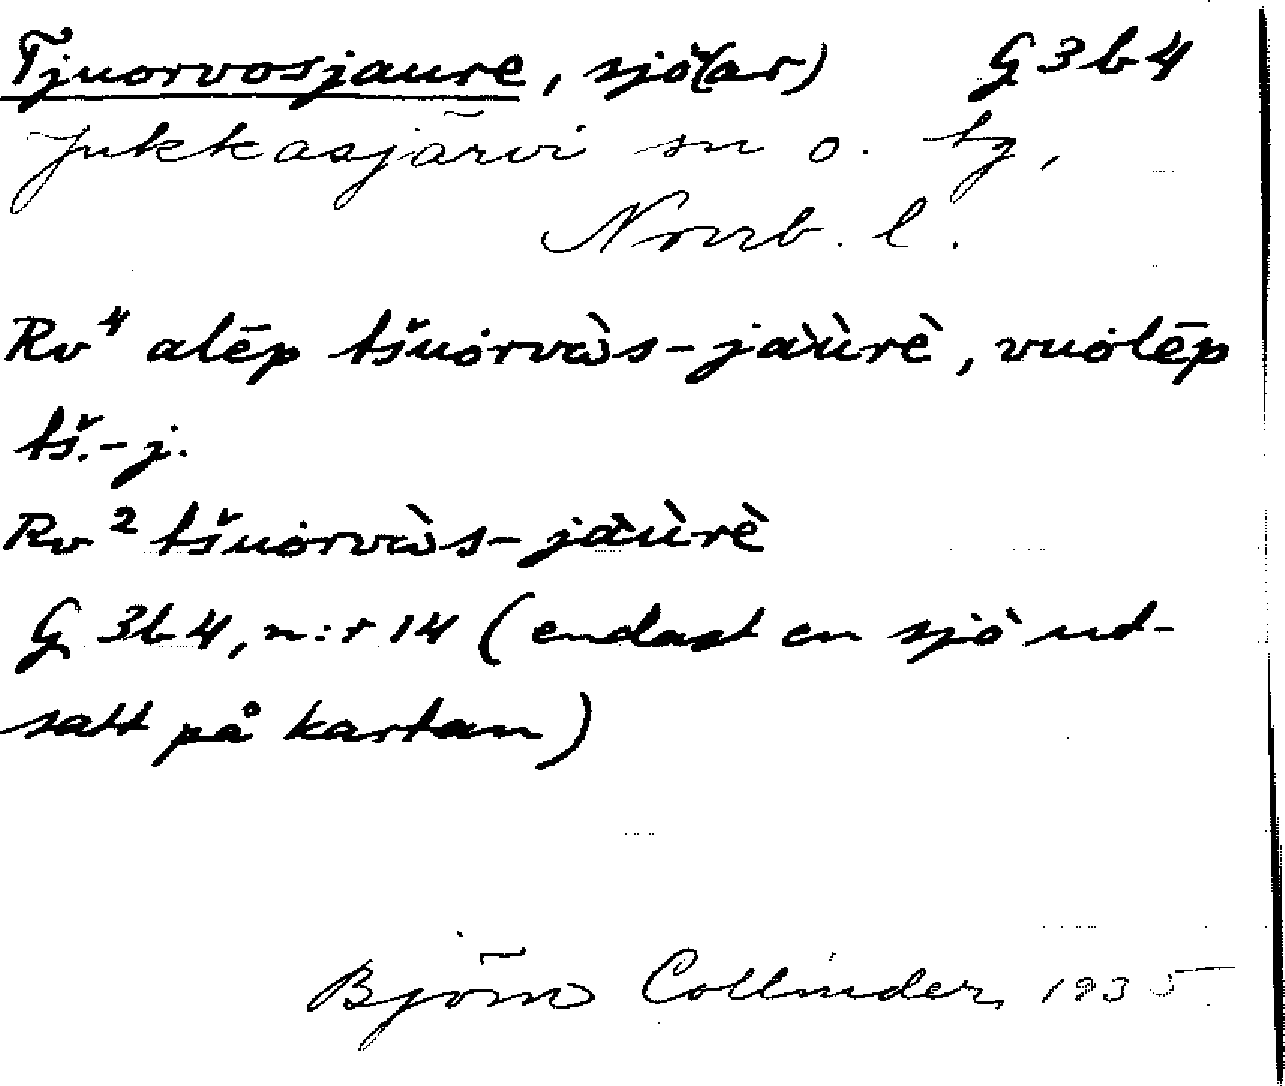 Tjuorvosjaure, sjö(ar) G 3 b 4
Jukkasjärvi sn o. tg,
Norrb. l.
Rv⁴ alēp tšuòrvὰs-jàùrè, vuolēp
tš.-j.
Rv² tšuòrvὰs-jàùrè
G 3b4, n:r 14 (endast en sjö ut-
satt på kartan)
Björn Collinder 1935